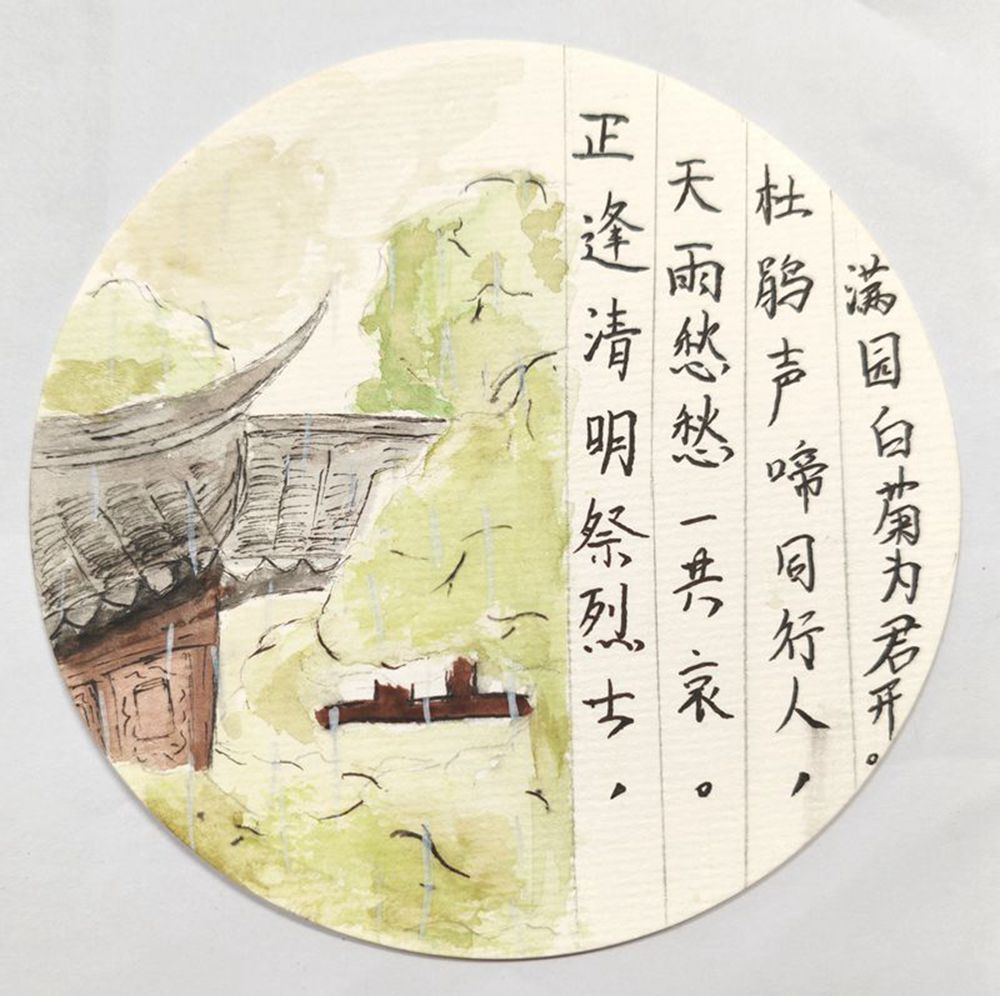 正逢清明祭烈士，
天雨愁愁一共哀。
杜鹃声啼同行人，
满园白菊为君开。